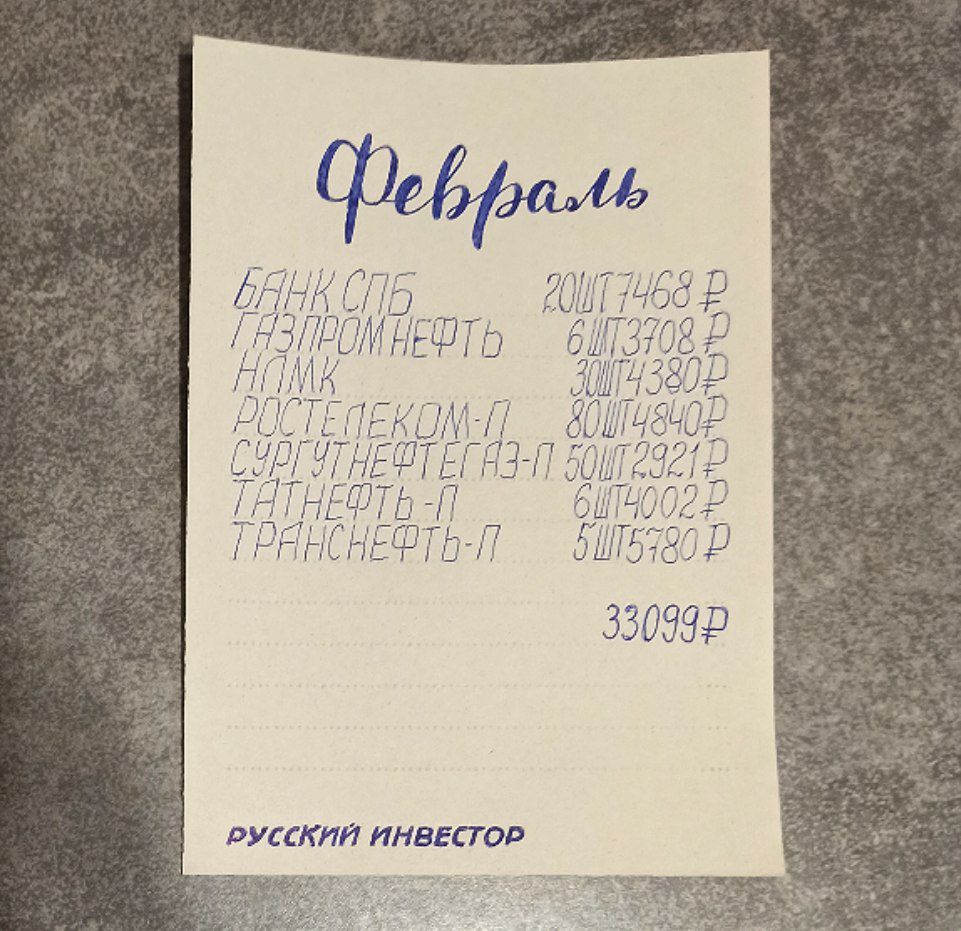 Февраль
БАНК СПБ 20ШТ 7468 ₽
ГАЗПРОМ НЕФТЬ 6ШТ 3708 ₽
НЛМК 30ШТ 4380 ₽
РОСТЕЛЕКОМ-П 80ШТ 4840 ₽
СУРГУТНЕФТЕГАЗ-П 50ШТ 2921 ₽
ТАТНЕФТЬ-П 6ШТ 4002 ₽
ТРАНСНЕФТЬ-П 5ШТ 5780 ₽
33099 ₽
РУССКИЙ ИНВЕСТОР